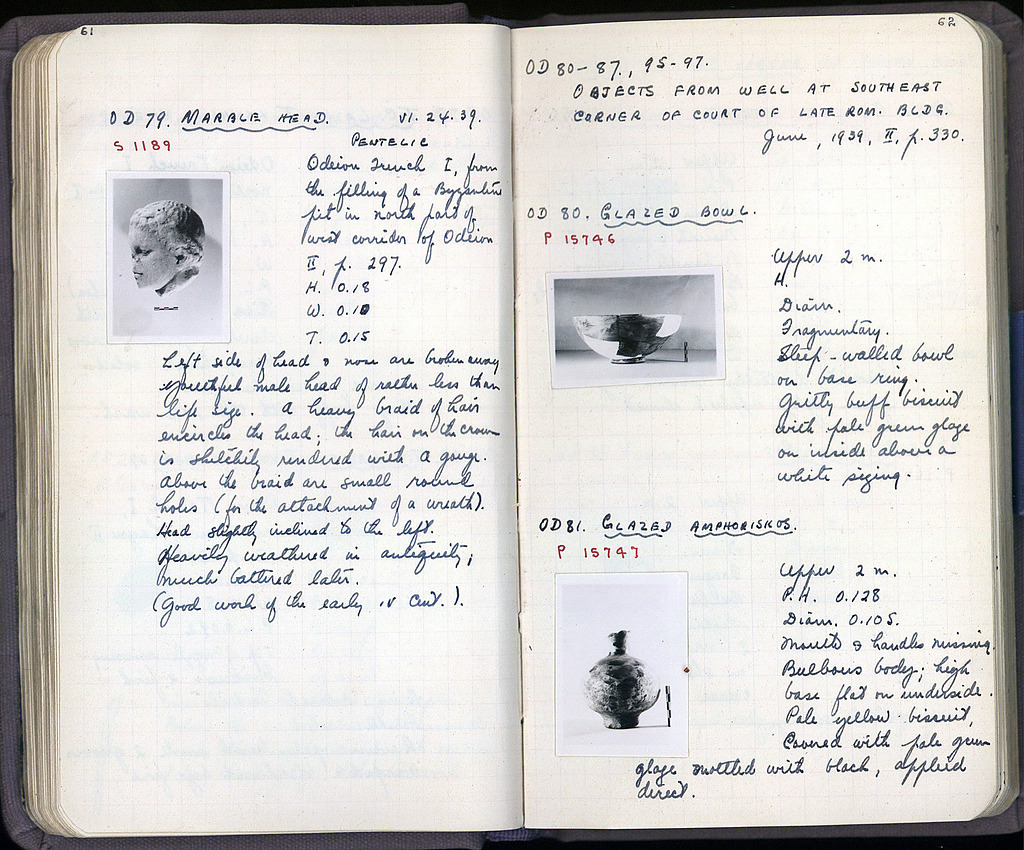 61
OD 79. MARBLE HEAD. VI. 24. 39.
S 1189
PENTELIC
Odeion Trench I, from
the filling of a Byzantine
pit in north part of
west corridor of Odeion
II, p. 297.
H. 0.18
W. 0.10
T. 0.15
Left side of head & nose are broken away
Youthful male head of rather less than
life size. A heavy braid of hair
encircles the head; the hair on the crown
is sketchily rendered with a gouge.
Above the braid are small round
holes (for the attachment of a wreath).
Head slightly inclined to the left.
Heavily weathered in antiquity;
much battered later.
(Good work of the early IV cent.).
62
OD 80-87., 95-97.
OBJECTS FROM WELL AT SOUTHEAST
CORNER OF COURT OF LATE ROM. BLDG.
June, 1939, II, p. 330.
OD 80. GLAZED BOWL.
P 15746
Upper 2 m.
H.
Diam.
Fragmentary.
Steep-walled bowl
on base ring.
Gritty buff biscuit
with pale green glaze
on inside above a
white sizing.
OD 81. GLAZED AMPHORISKOS.
P 15747
Upper 2 m.
P.H. 0.128
Diam. 0.105.
Mouth & handles missing.
Bulbous body; high
base flat on underside.
Pale yellow biscuit,
Covered with pale green
glaze mottled with black, applied
direct.